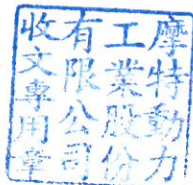 摩特動力
工業股份
有限公司
收文專用章